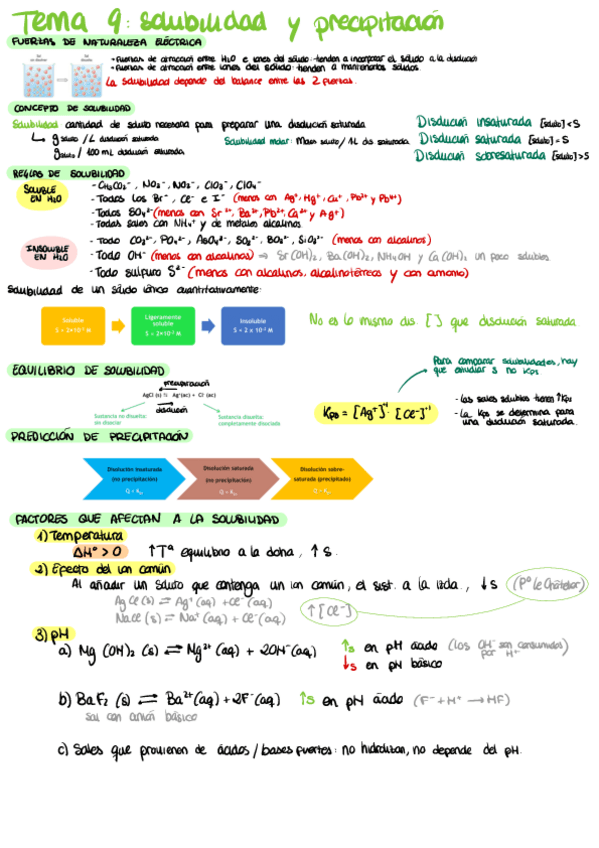 Tema 9: solubilidad y precipitación
FUERZAS DE NATURALEZA ELÉCTRICA
- Fuerzas de atracción entre H₂O e iones del sólido: tienden a incorporar el sólido a la disolución
- Fuerzas de atracción entre iones del sólido: tienden a mantenerlos sólidos
La solubilidad depende del balance entre las 2 fuerzas.
CONCEPTO DE SOLUBILIDAD
Solubilidad cantidad de soluto necesaria para preparar una disolución saturada
g soluto / L disolución saturada
g soluto / 100 mL disolución saturada
Solubilidad molar: moles soluto / 1L dis saturada
Disolución insaturada [soluto] < S
Disolución saturada [soluto] = S
Disolución sobresaturada [soluto] > S
REGLAS DE SOLUBILIDAD
SOLUBLE EN H₂O
- CH₃CO₂⁻, NO₃⁻, NO₂⁻, ClO₃⁻, ClO₄⁻
- Todos los Br⁻, Cl⁻ e I⁻ (menos con Ag⁺, Hg⁺, Cu⁺, Pb²⁺ y Pb⁴⁺)
- Todos SO₄²⁻ (menos con Sr²⁺, Ba²⁺, Pb²⁺, Ca²⁺ y Ag⁺)
- Todas sales con NH₄⁺ y de metales alcalinos
INSOLUBLE EN H₂O
- Todo CO₃²⁻, PO₄³⁻, AsO₄³⁻, SO₃²⁻, BO₃³⁻, SiO₃²⁻ (menos con alcalinos)
- Todo OH⁻ (menos con alcalinos) ⇒ Sr(OH)₂, Ba(OH)₂, NH₄OH y Ca(OH)₂ un poco solubles
- Todo sulfuro S²⁻ (menos con alcalinos, alcalinotérreos y con amonio)
Solubilidad de un sólido iónico cuantitativamente:
Soluble
S > 2×10⁻² M
Ligeramente soluble
S = 2×10⁻² M
Insoluble
S < 2 x 10⁻² M
No es lo mismo dis. [ ] que disolución saturada
EQUILIBRIO DE SOLUBILIDAD
precipitación
AgCl (s) ⇆ Ag⁺(ac) + Cl⁻(ac)
disolución
Sustancia no disuelta: sin disociar
Sustancia disuelta: completamente disociada
Kps = [Ag⁺]¹ · [Cl⁻]¹
Para comparar solubilidades, hay
que estudiar S no Kps
- las sales solubles tienen ↑Kps
- La Kps se determina para
una disolución saturada.
PREDICCIÓN DE PRECIPITACIÓN
Disolución insaturada
(no precipitación)
Disolución saturada
(no precipitación)
Disolución sobre-
saturada (precipitado)
FACTORES QUE AFECTAN A LA SOLUBILIDAD
1) Temperatura
ΔH° > 0 ↑Tª equilibrio a la dcha, ↑S.
2) Efecto del ion común
Al añadir un soluto que contenga un ion común, el sist. a la izda, ↓S (Pº Le Châtelier)
AgCl(s) ⇌ Ag⁺(aq) + Cl⁻(aq)
NaCl(s) ⇌ Na⁺(aq) + Cl⁻(aq)
↑[Cl⁻]
3) pH
a) Mg(OH)₂ (s) ⇌ Mg²⁺(aq) + 2OH⁻(aq)
↑S en pH ácido (los OH⁻ son consumidos por H⁺)
↓S en pH básico
b) BaF₂ (s) ⇌ Ba²⁺(aq) + 2F⁻(aq) ↑S en pH ácido (F⁻ + H⁺ → HF)
sal con anión básico
c) Sales que provienen de ácidos / bases fuertes: no hidrolizan, no depende del pH.